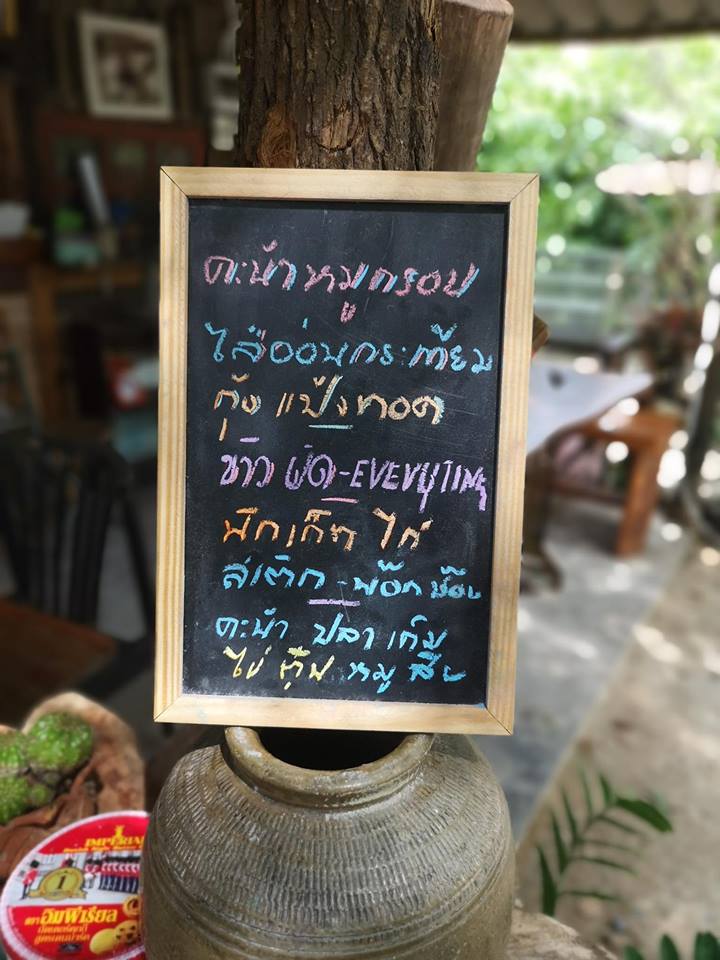 คะน้าหมูกรอบ
ไส้อ่อนกระเทียม
กุ้ง แป้งทอด
ข้าวผัด-EVERYTING
นักเก็ต ไก่
สเต๊ก-พ๊อกช๊อบ
คะน้า ปลาเค็ม
ไข่ตุ๋น หมูสับ
1
IMPERIAL
1
ตรา อิมพีเรียล